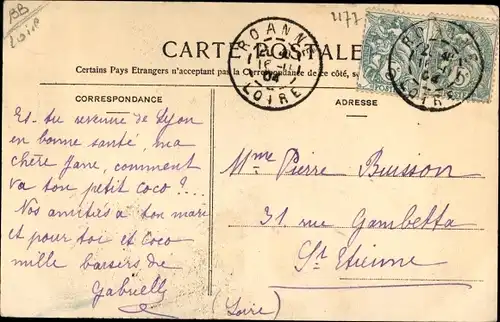 BB
Loire
477
CARTE POSTALE
Certains Pays Etrangers n'acceptant pas la Correspondance de ce côté, se
ROANNE
04
LOIRE
ROANNE
04
LOIRE
CORRESPONDANCE
ADRESSE
Es-tu revenue de Lyon
en bonne santé, ma
chère Jane, comment
va ton petit coco ?...
Nos amitiés a ton mari
et pour toi et Coco
mille baisers de
Gabrielle
Mme Pierre Buisson
31 rue Gambetta
St Etienne
(Loire)